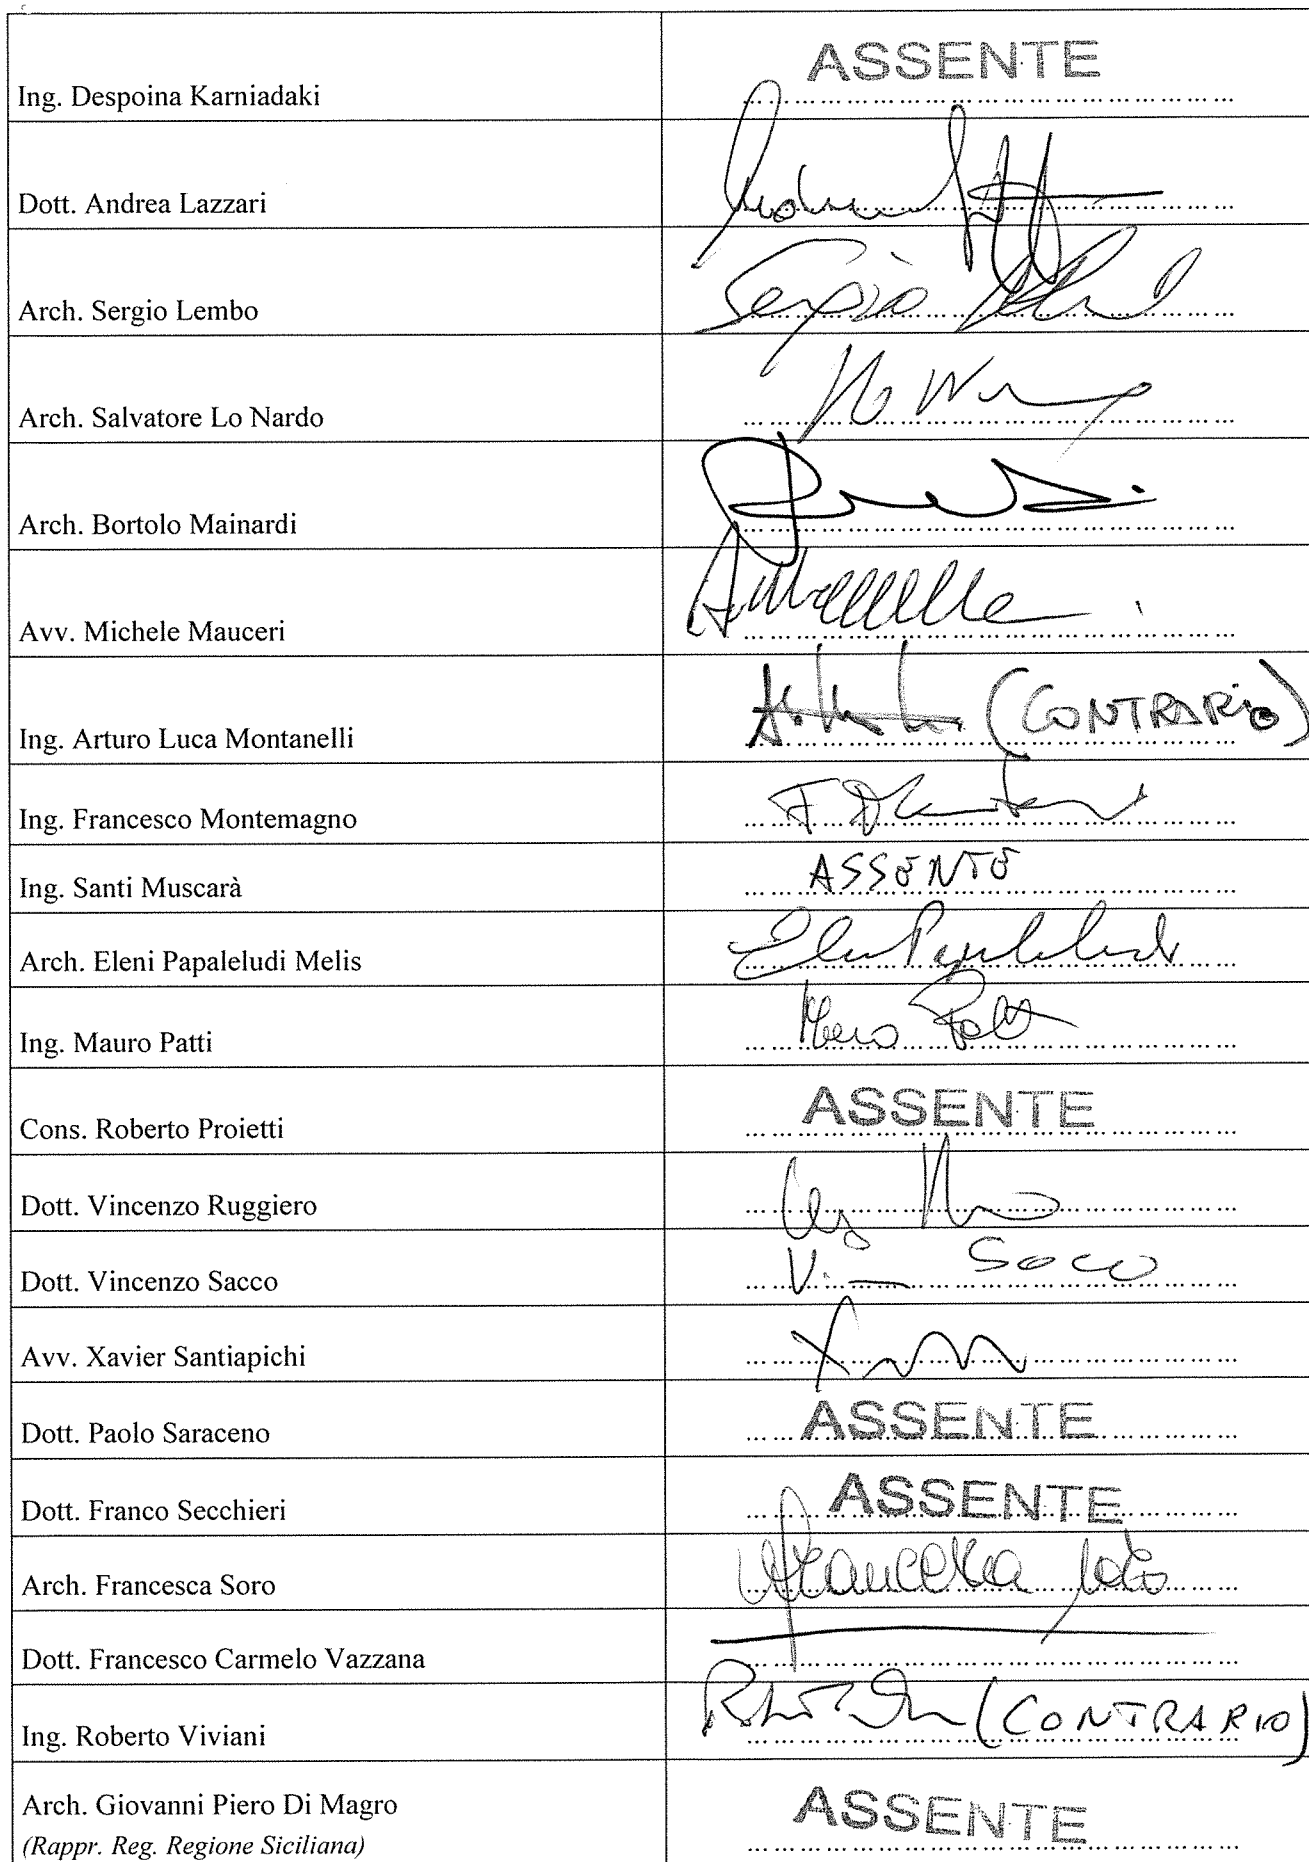 Ing. Despoina Karniadaki ASSENTE
Dott. Andrea Lazzari
Arch. Sergio Lembo Sergio
Arch. Salvatore Lo Nardo
Arch. Bortolo Mainardi
Avv. Michele Mauceri
Ing. Arturo Luca Montanelli (CONTRARIO)
Ing. Francesco Montemagno
Ing. Santi Muscarà ASSENTE
Arch. Eleni Papaleludi Melis
Ing. Mauro Patti
Cons. Roberto Proietti ASSENTE
Dott. Vincenzo Ruggiero
Dott. Vincenzo Sacco
Avv. Xavier Santiapichi
Dott. Paolo Saraceno ASSENTE
Dott. Franco Secchieri ASSENTE
Arch. Francesca Soro Francesca Soro
Dott. Francesco Carmelo Vazzana
Ing. Roberto Viviani (CONTRARIO)
Arch. Giovanni Piero Di Magro ASSENTE
(Rappr. Reg. Regione Siciliana)